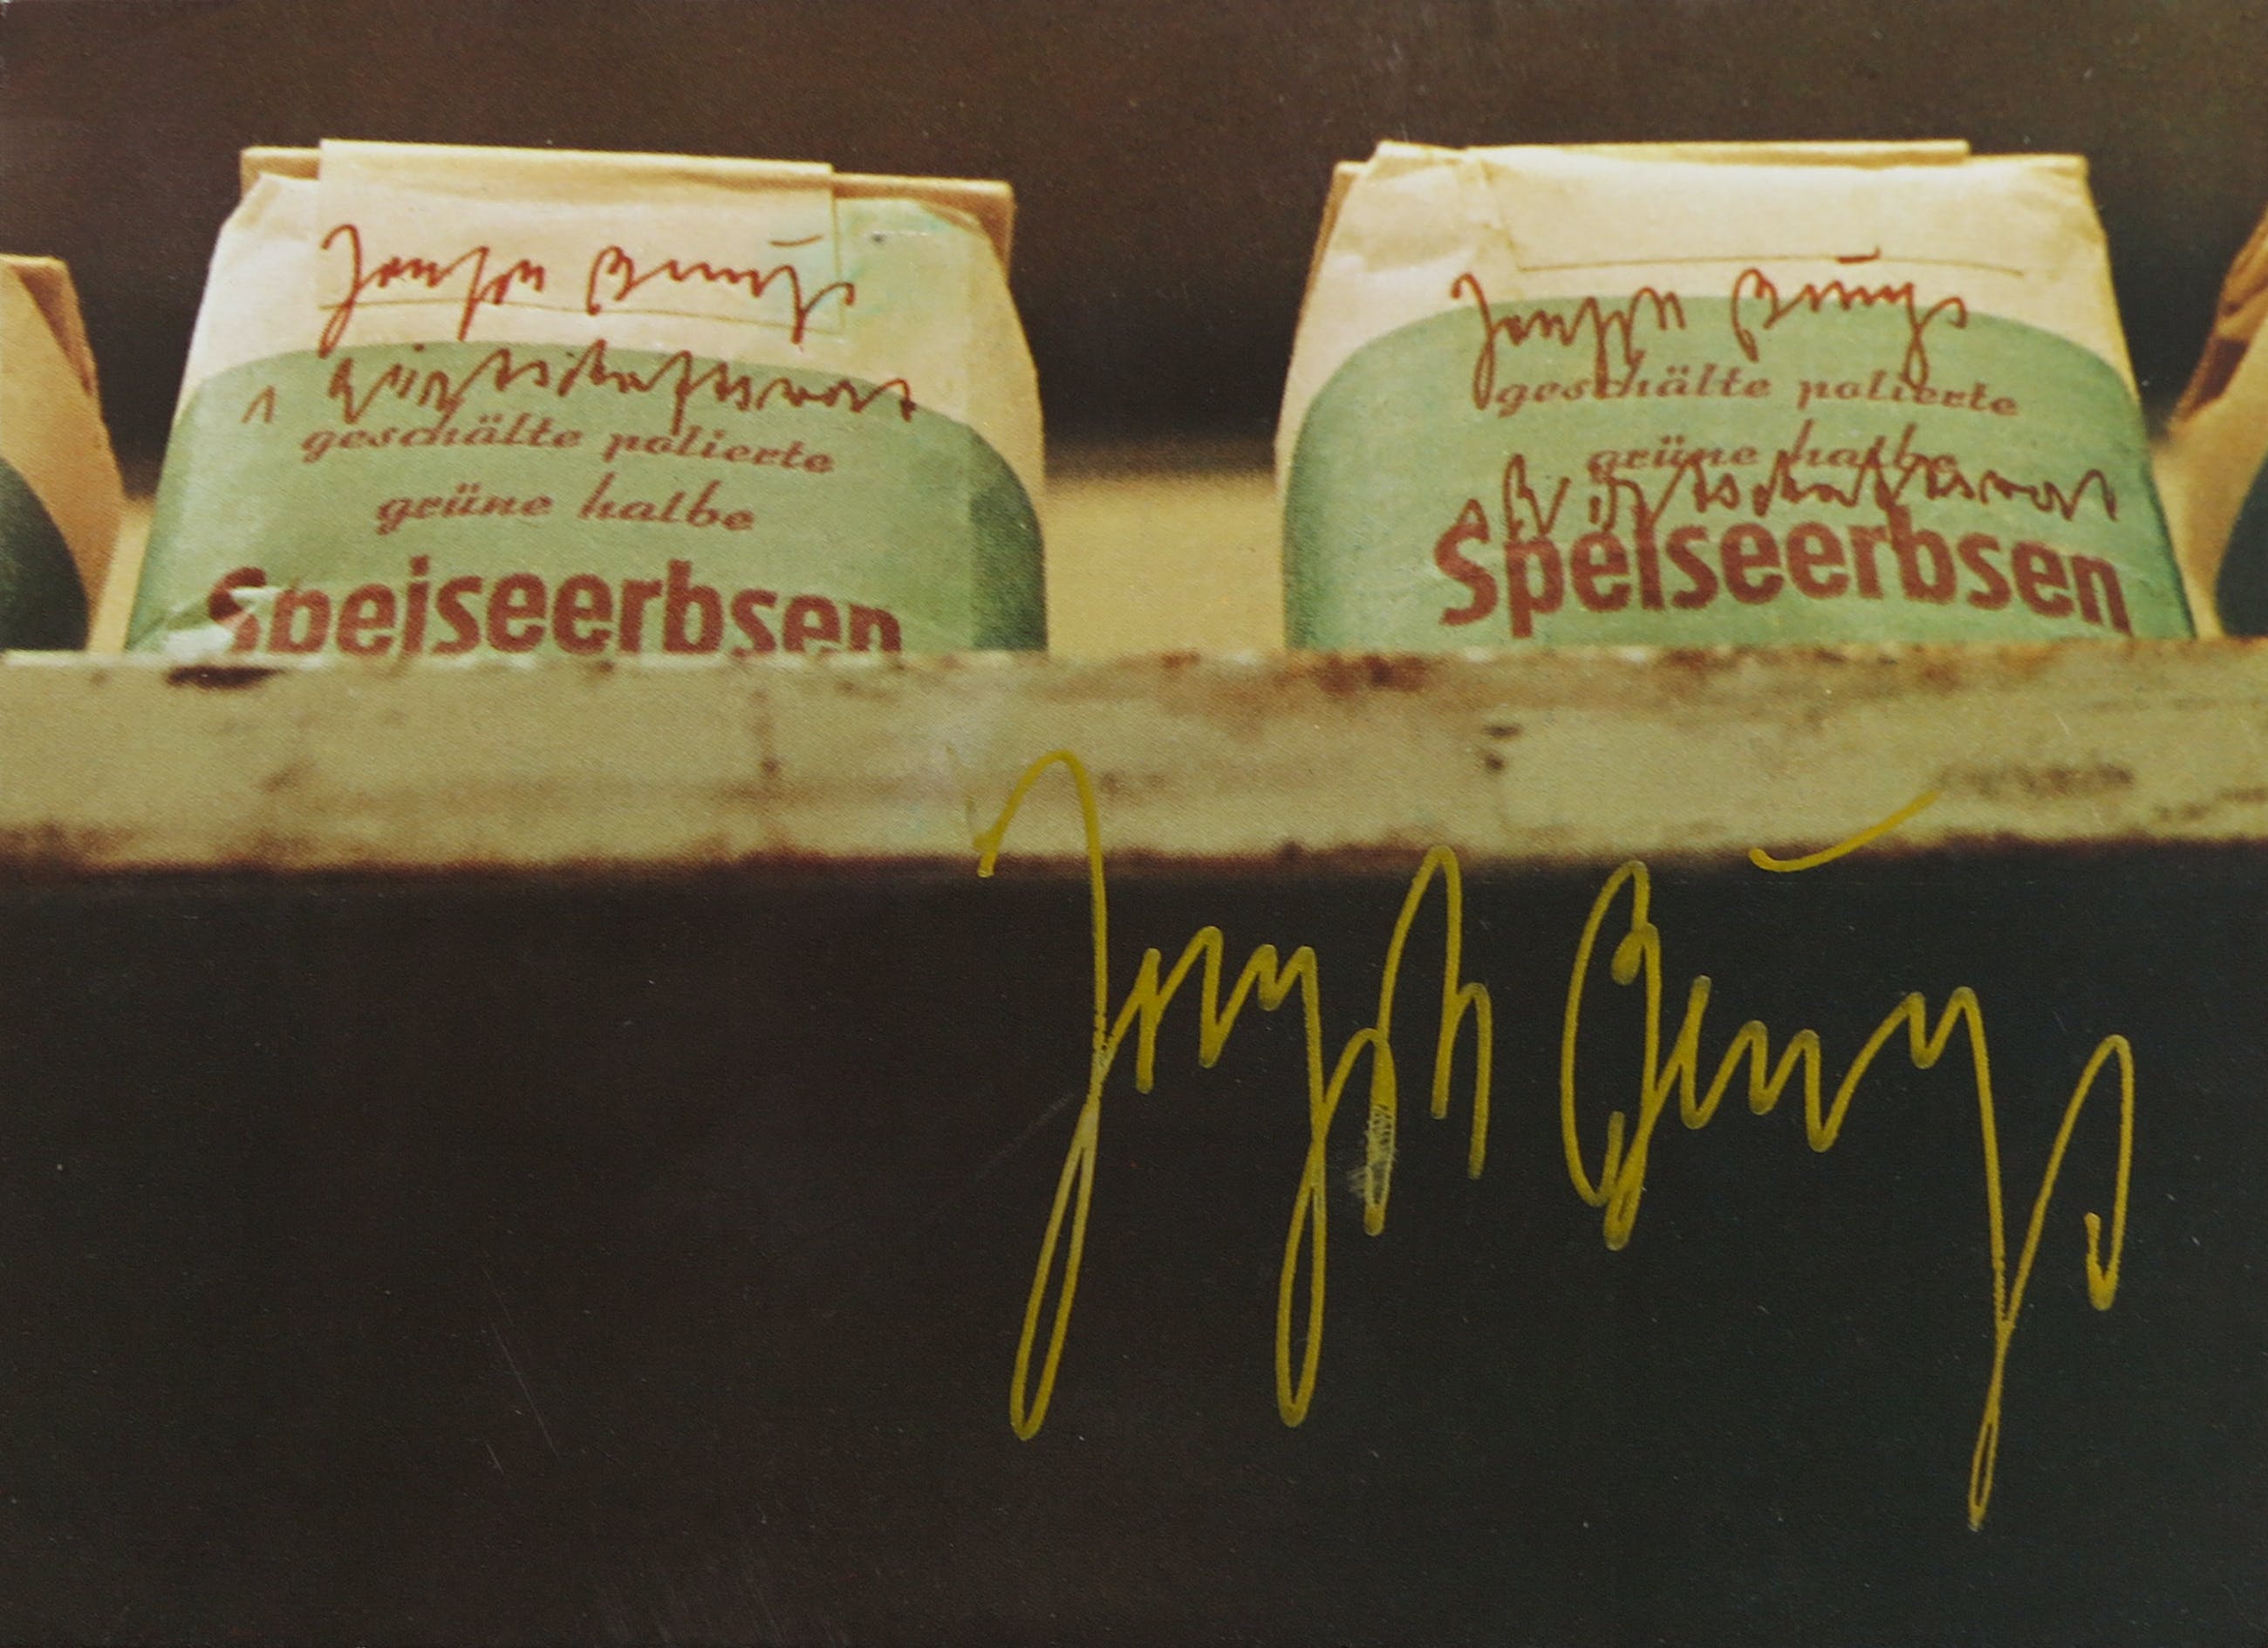 Joseph Beuys
1 Wirtschaftswert
geschälte polierte
grüne halbe
Speiseerbsen
Joseph Beuys
geschälte polierte
grüne halbe
1 Wirtschaftswert
Speiseerbsen
Joseph Beuys